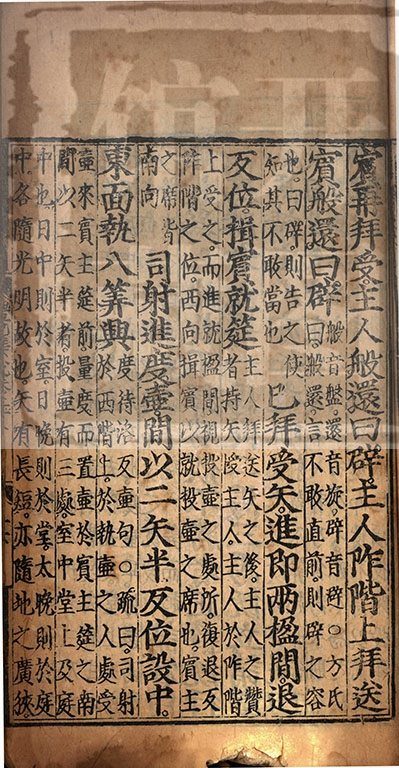 賓再拜受。主人般還曰辟。主人阼階上拜送
賓般還曰辟。
般音盤還音旋辟音避○方氏
曰般還言不敢直前則辟之容
也。曰辟。則告之使
知其不敢當也
已拜受矢。進即兩楹間。退
反位。揖賓就筵
主人拜送矢之後。主人之贊
者持矢授主人。主人於阼階
上受之。而進就楹間視投壺之處所。復退反
阼階之位。西向揖賓以就投壺之席也。賓主
之席皆
南向
司射進度壺。間以二矢半。反位設中。
東面執八筭興
度待洛反壺句○疏曰。司射
於西階上。於執壺之人處受
壺。來賓主筵前量度。而置壺於賓主筵之南
間以二矢半者。投壺有三處。室中堂上及庭
中也。日中則於室。日晚則於堂。太晚則於庭
中。各隨光明故也。矢有長短。亦隨地之廣狹。